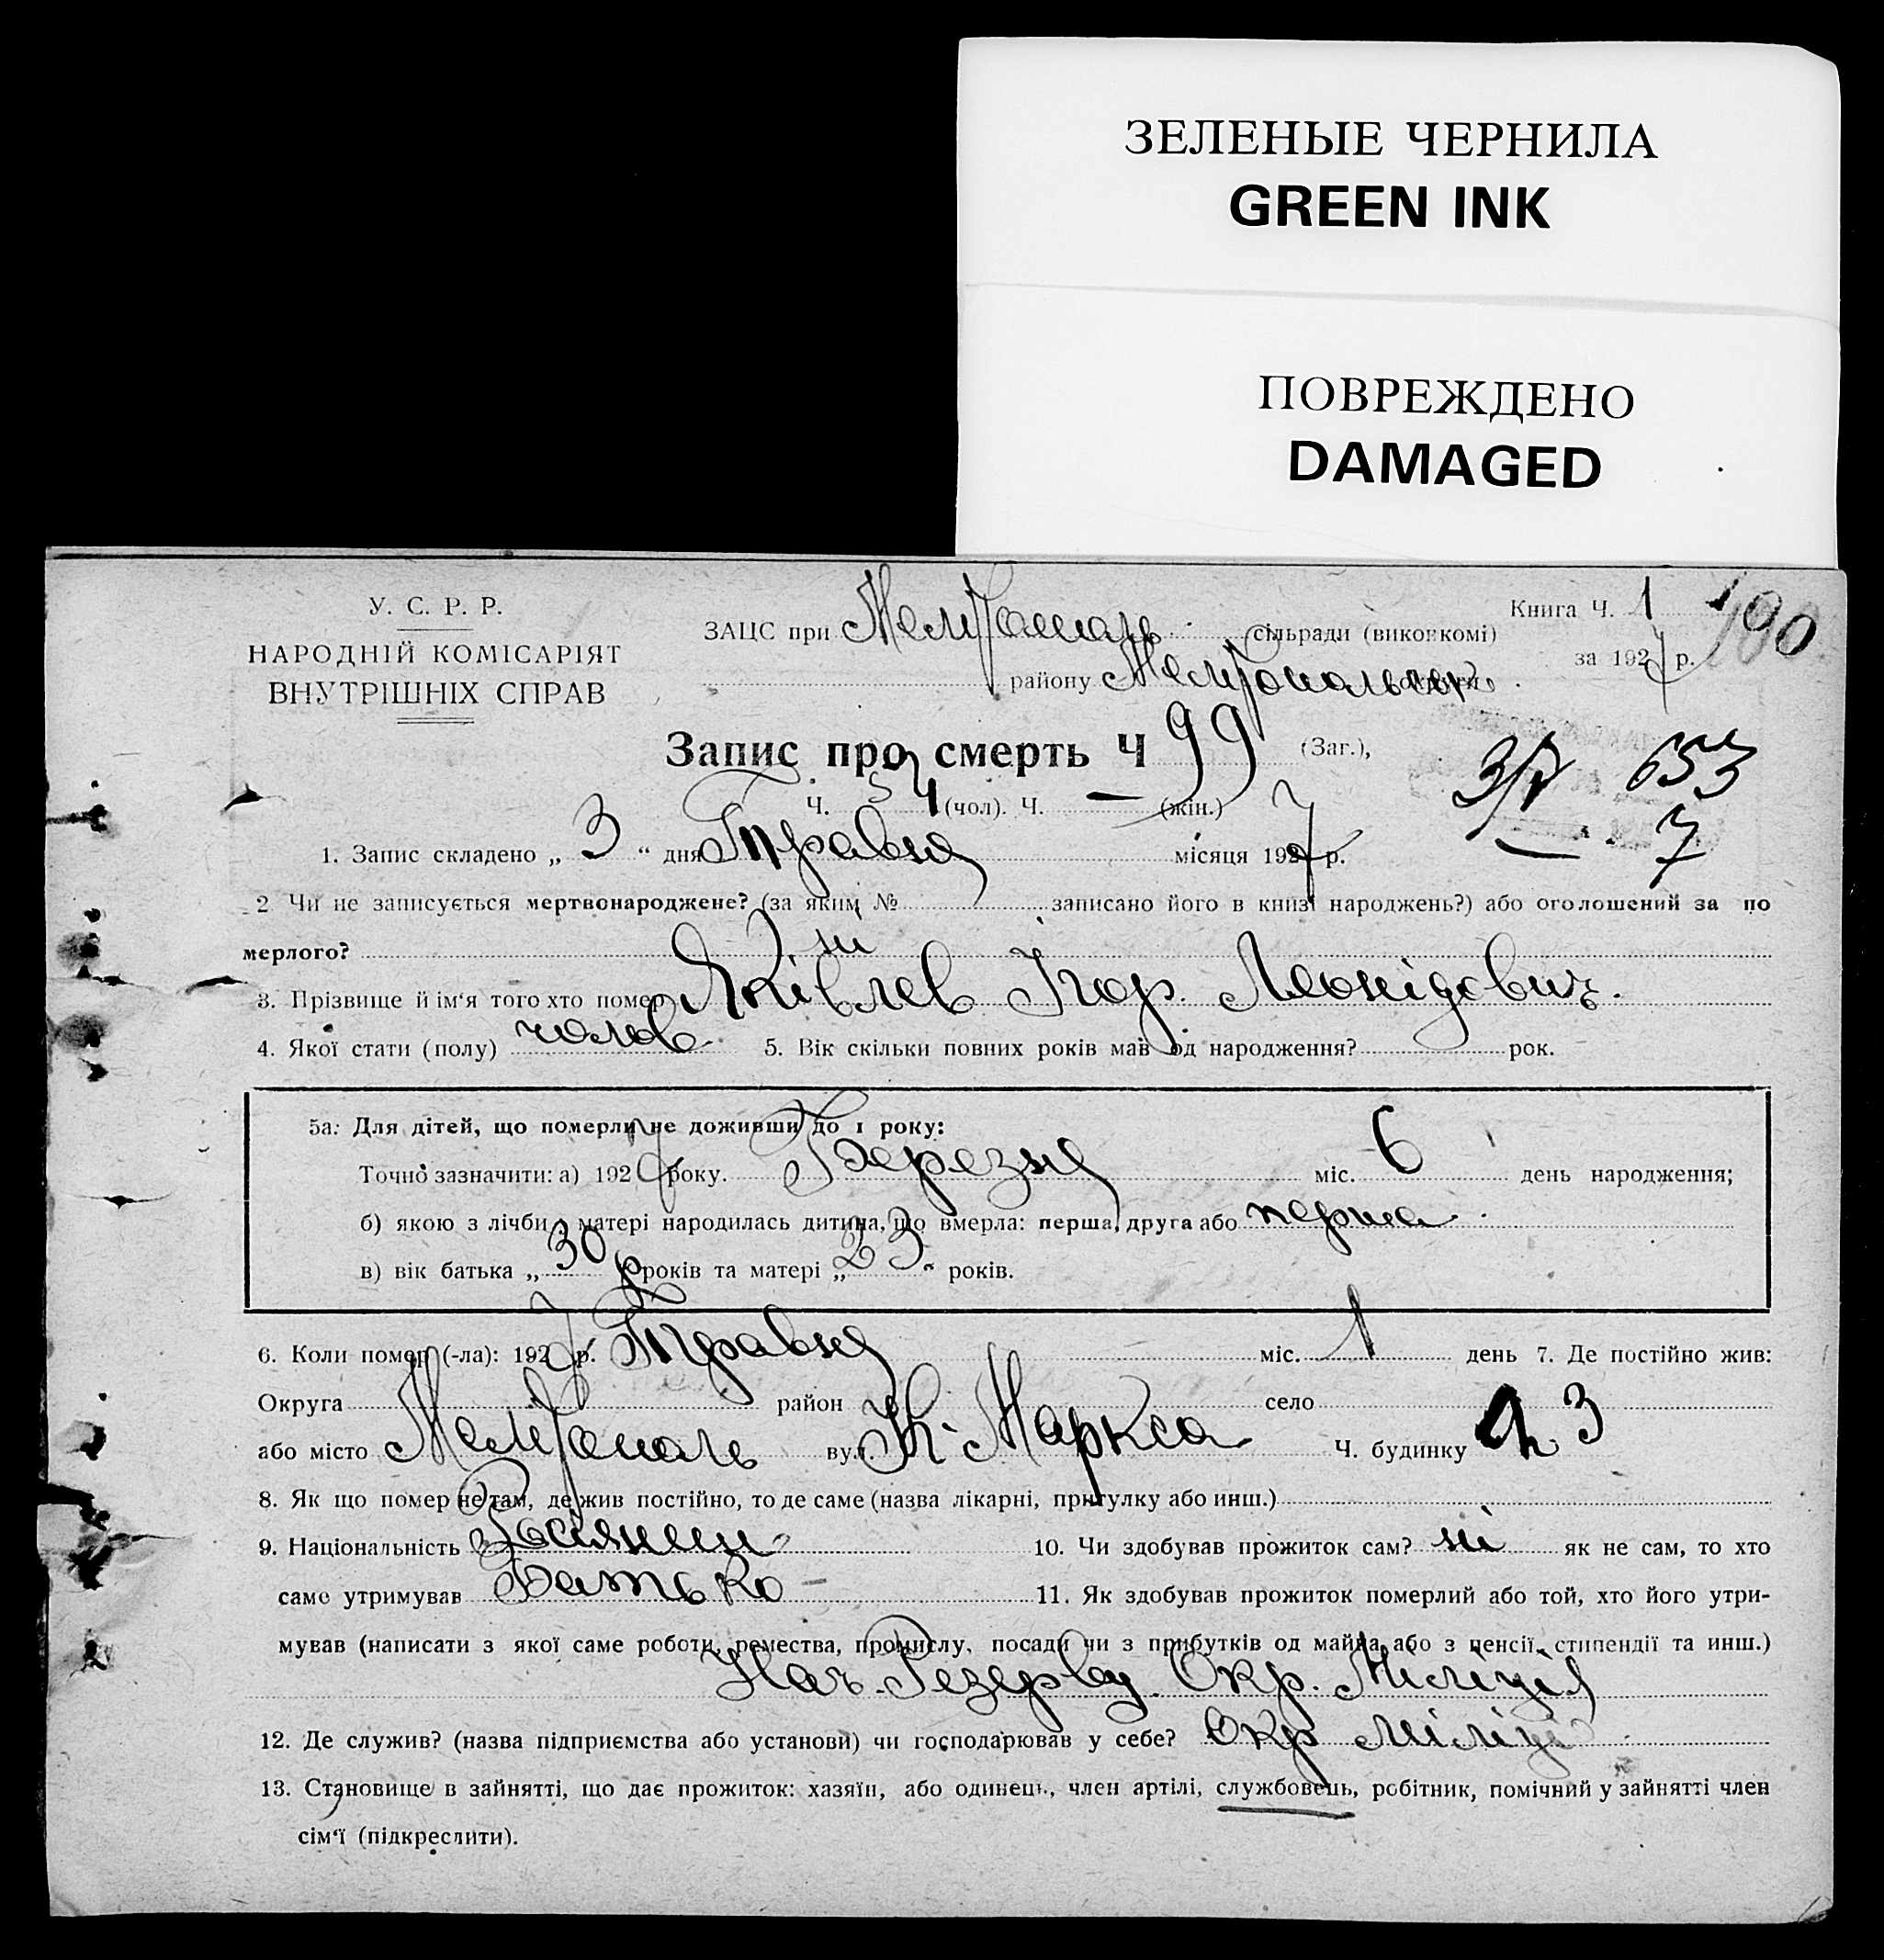 ЗЕЛЕНЫЕ ЧЕРНИЛА
GREEN INK
ПОВРЕЖДЕНО
DAMAGED
У. С. Р. Р.
НАРОДНІЙ КОМІСАРІЯТ
ВНУТРІШНІХ СПРАВ
ЗАЦС при Мелітополь сільради (виконкомі)
району Мелітопольськ округи
Книга Ч. 1 190
за 1927 р.
Запис про смерть Ч 99 (Заг.),
Ч. 54 (чол). Ч. — (жін.)
653
7
1. Запис складено „ 3 “ дня Травня місяця 1927 р.
2 Чи не записується мертвонароджене? (за яким № записано його в книзі народжень?) або оголошений за по
мерлого? ні
3. Прізвище й ім'я того хто помер Яківлев Ігор Леонідович.
4. Якої стати (полу) чолов. 5. Вік скільки повних років мав од народження? рок.
5а: Для дітей, що померли не доживши до 1 року:
Точно зазначити: а) 1927 року. Березня міс. 6 день народження;
б) якою з лічби у матері народилась дитина, що вмерла: перша, друга або перша
в) вік батька „ 30 р “ років та матері „ 23 “ років.
6. Коли помер (-ла): 1927 р. Травня міс. 1 день 7. Де постійно жив:
Округа район село
або місто Мелітополь вул. К. Маркса Ч. будинку 23
8. Як що помер не там, де жив постійно, то де саме (назва лікарні, притулку або инш.)
9. Національність Росіянин 10. Чи здобував прожиток сам? ні як не сам, то хто
саме утримував Батько — 11. Як здобував прожиток померлий або той, хто його утри-
мував (написати з якої саме роботи, ремества, промислу, посади чи з прибутків од майна або з пенсії, стипендії та инш.)
Нач. Резерву Окр. Міліції
12. Де служив? (назва підприємства або установи) чи господарював у себе? Окр Міліці
13. Становище в зайнятті, що дає прожиток: хазяїн, або одинець, член артілі, службовець, робітник, помічний у зайнятті член
сім'ї (підкреслити).